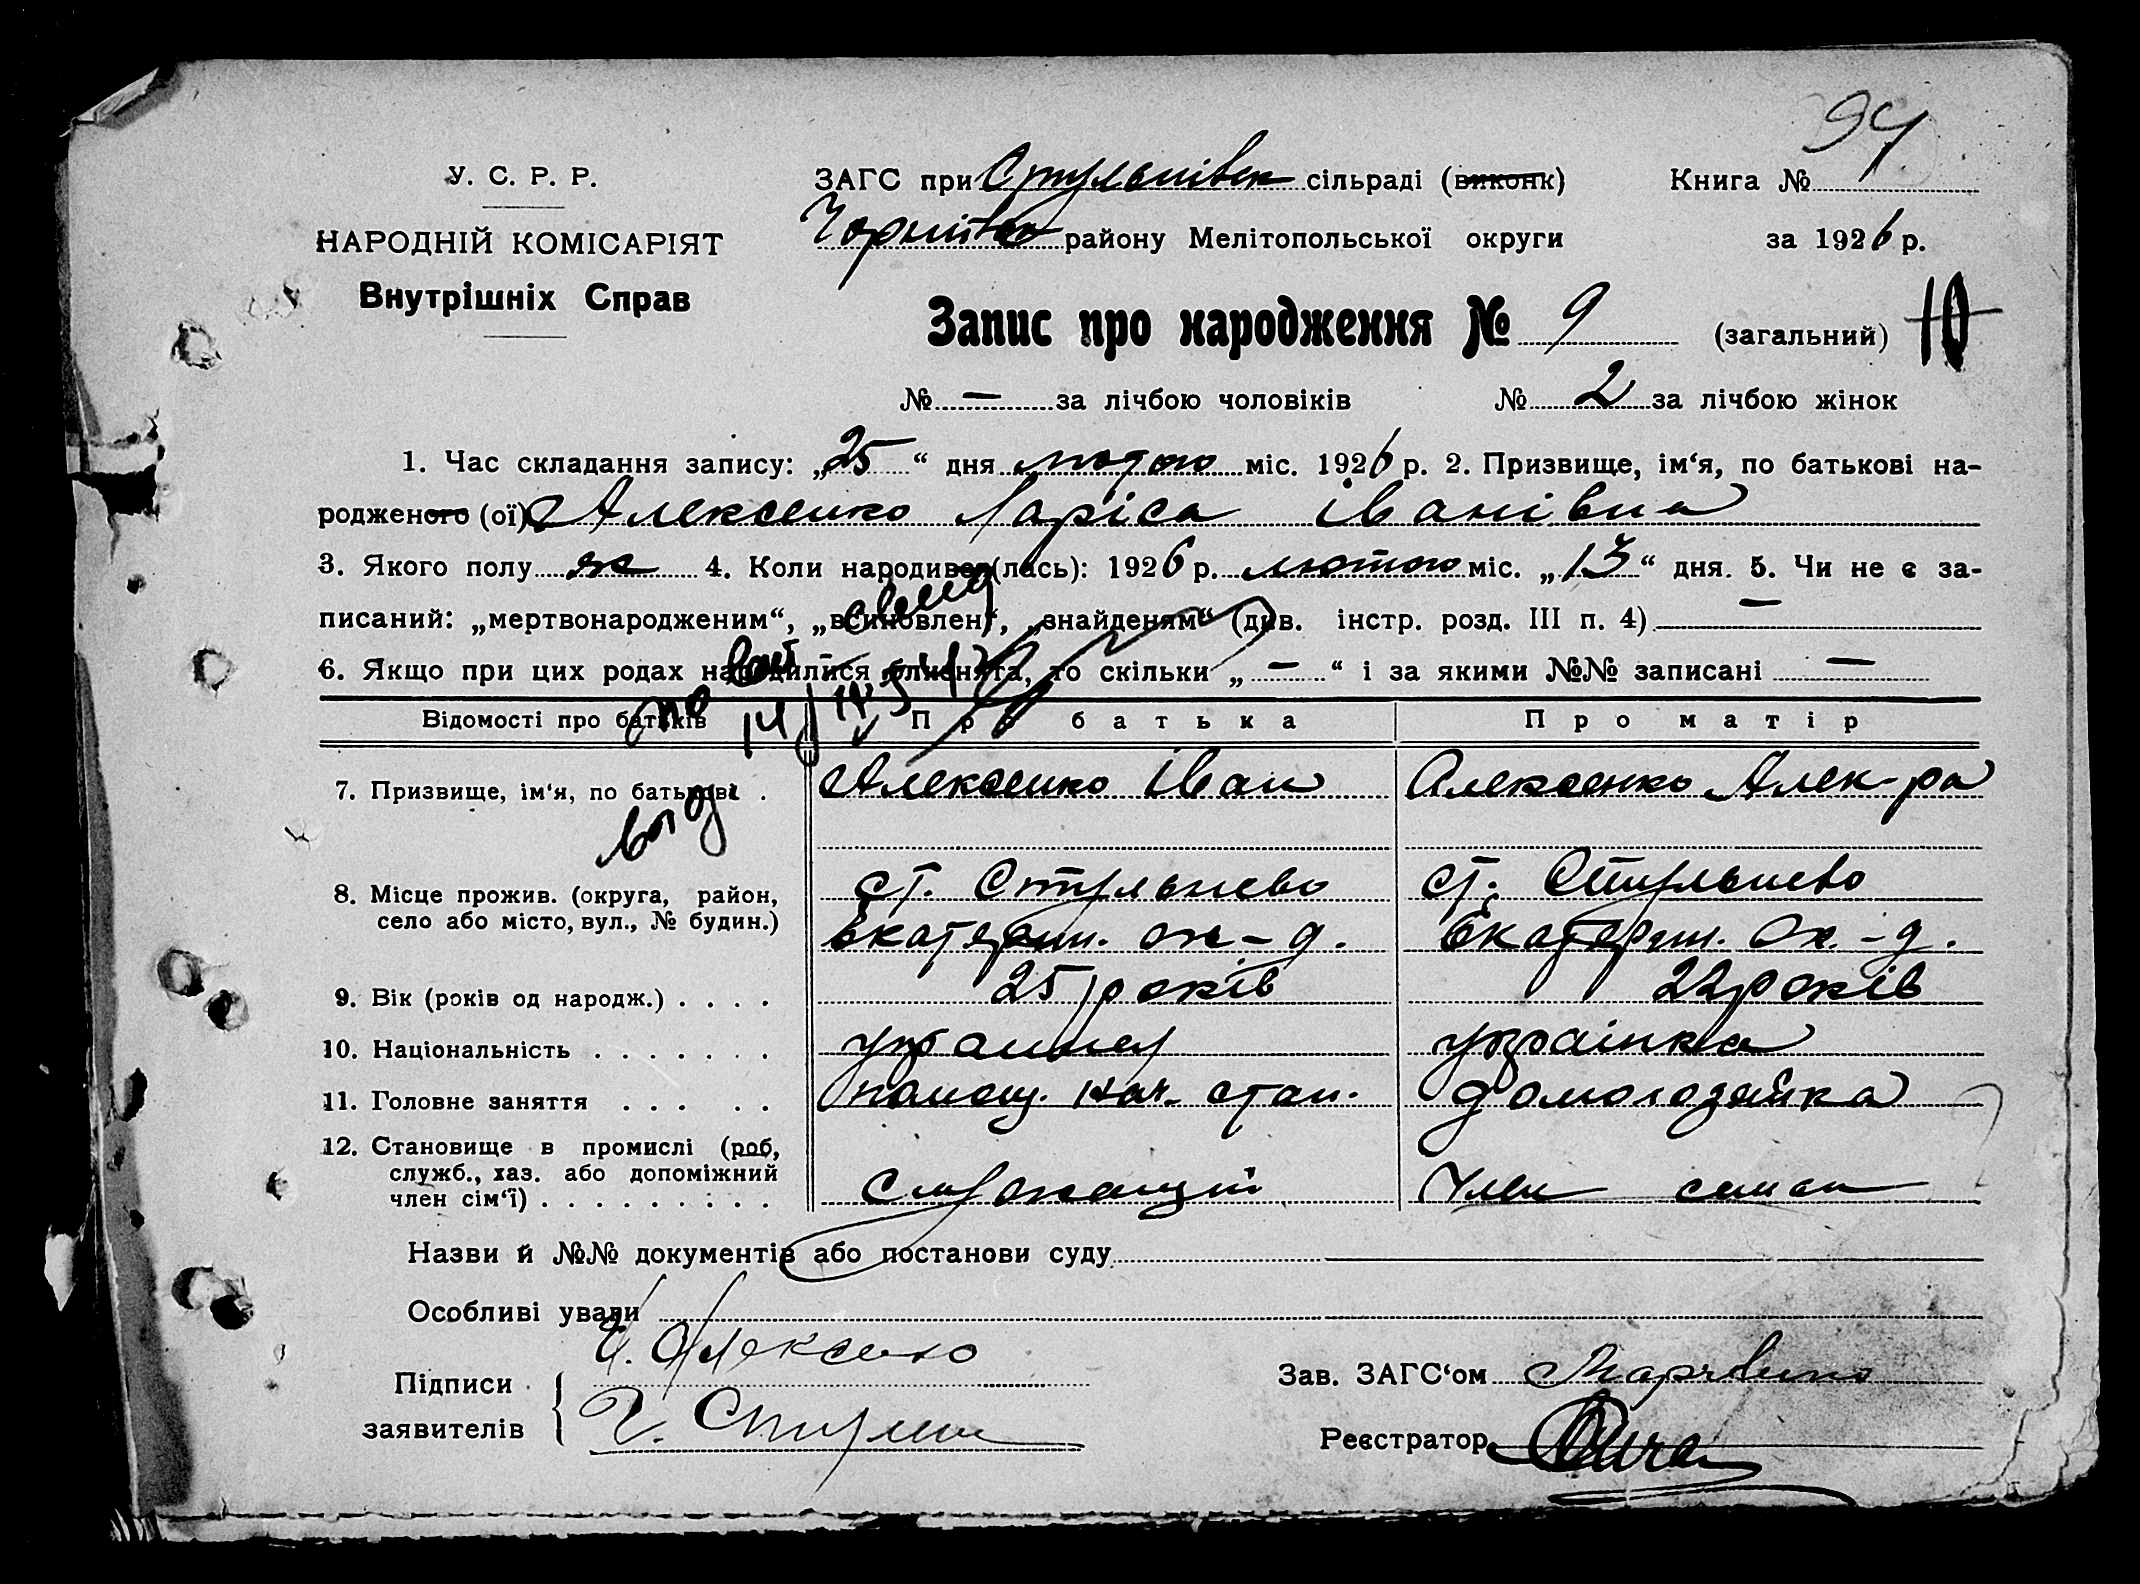 94
У. С. Р. Р.
НАРОДНІЙ КОМІСАРІЯТ
Внутрішніх Справ
ЗАГС при Стульнівск сільраді (виконк) Книга №
району Мелітопольської округи за 1926 р.
Запис про народження № 9 (загальний) 10
№ — за лічбою чоловіків № 2 за лічбою жінок
1. Час складання запису: „25“ дня лютого міс. 1926 р. 2. Призвище, ім‘я, по батькові на-
родженого (ої) Алексенко Ларіса Іванівна
3. Якого полу ж 4. Коли народивсь (лась): 1926 р. лютого міс. „13“ дня. 5. Чи не є за-
писаний: „мертвонародженим“, „всиновлен“, „знайденям“ (див. інстр. розд. III п. 4) —
6. Якщо при цих родах народилися близнята, то скільки „ — “ і за якими №№ записані —
Відомості про батьків Про батька Про матір
7. Призвище, ім‘я, по батькові . Алексенко Іван Алексенко Алек-ра
8. Місце прожив. (округа, район, ст. Стульнево ст. Стульнево
село або місто, вул., № будин.) Екатерин. ж-д. Екатерин. ж-д.
9. Вік (років од народж.) . . . . 25 років 22 років
10. Національність . . . . . . . українец українка
11. Головне заняття . . . . . помощ. нач. стан. домохозяйка
12. Становище в промислі (роб,
служб., хаз. або допоміжний
член сім‘ї) . . . . . . . . . Служащий Член семьи
Назви й №№ документів або постанови суду
Особливі уваги
И. Алексенко
Підписи
заявителів
Зав. ЗАГС‘ом
Реєстратор